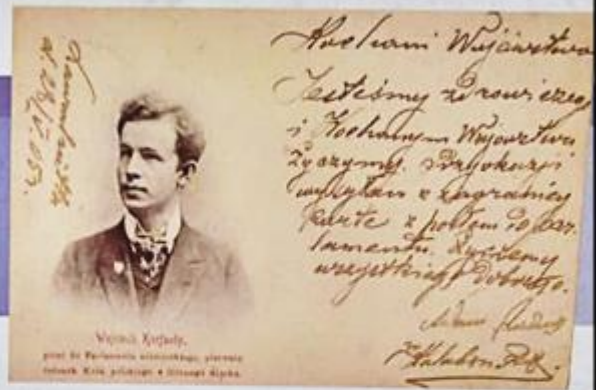 Kochani Wujostwo
Jesteśmy zdrowi czego
i Kochanym Wujostwu
życzymy. Przy okazji
wysyłam z zagranicy
kartę z posłem do par-
lamentu. Życzymy
wszystkiego dobrego.
Wojciech Korfanty,
poseł do Parlamentu niemieckiego, pierwszy
członek Koła polskiego z Górnego Śląska.